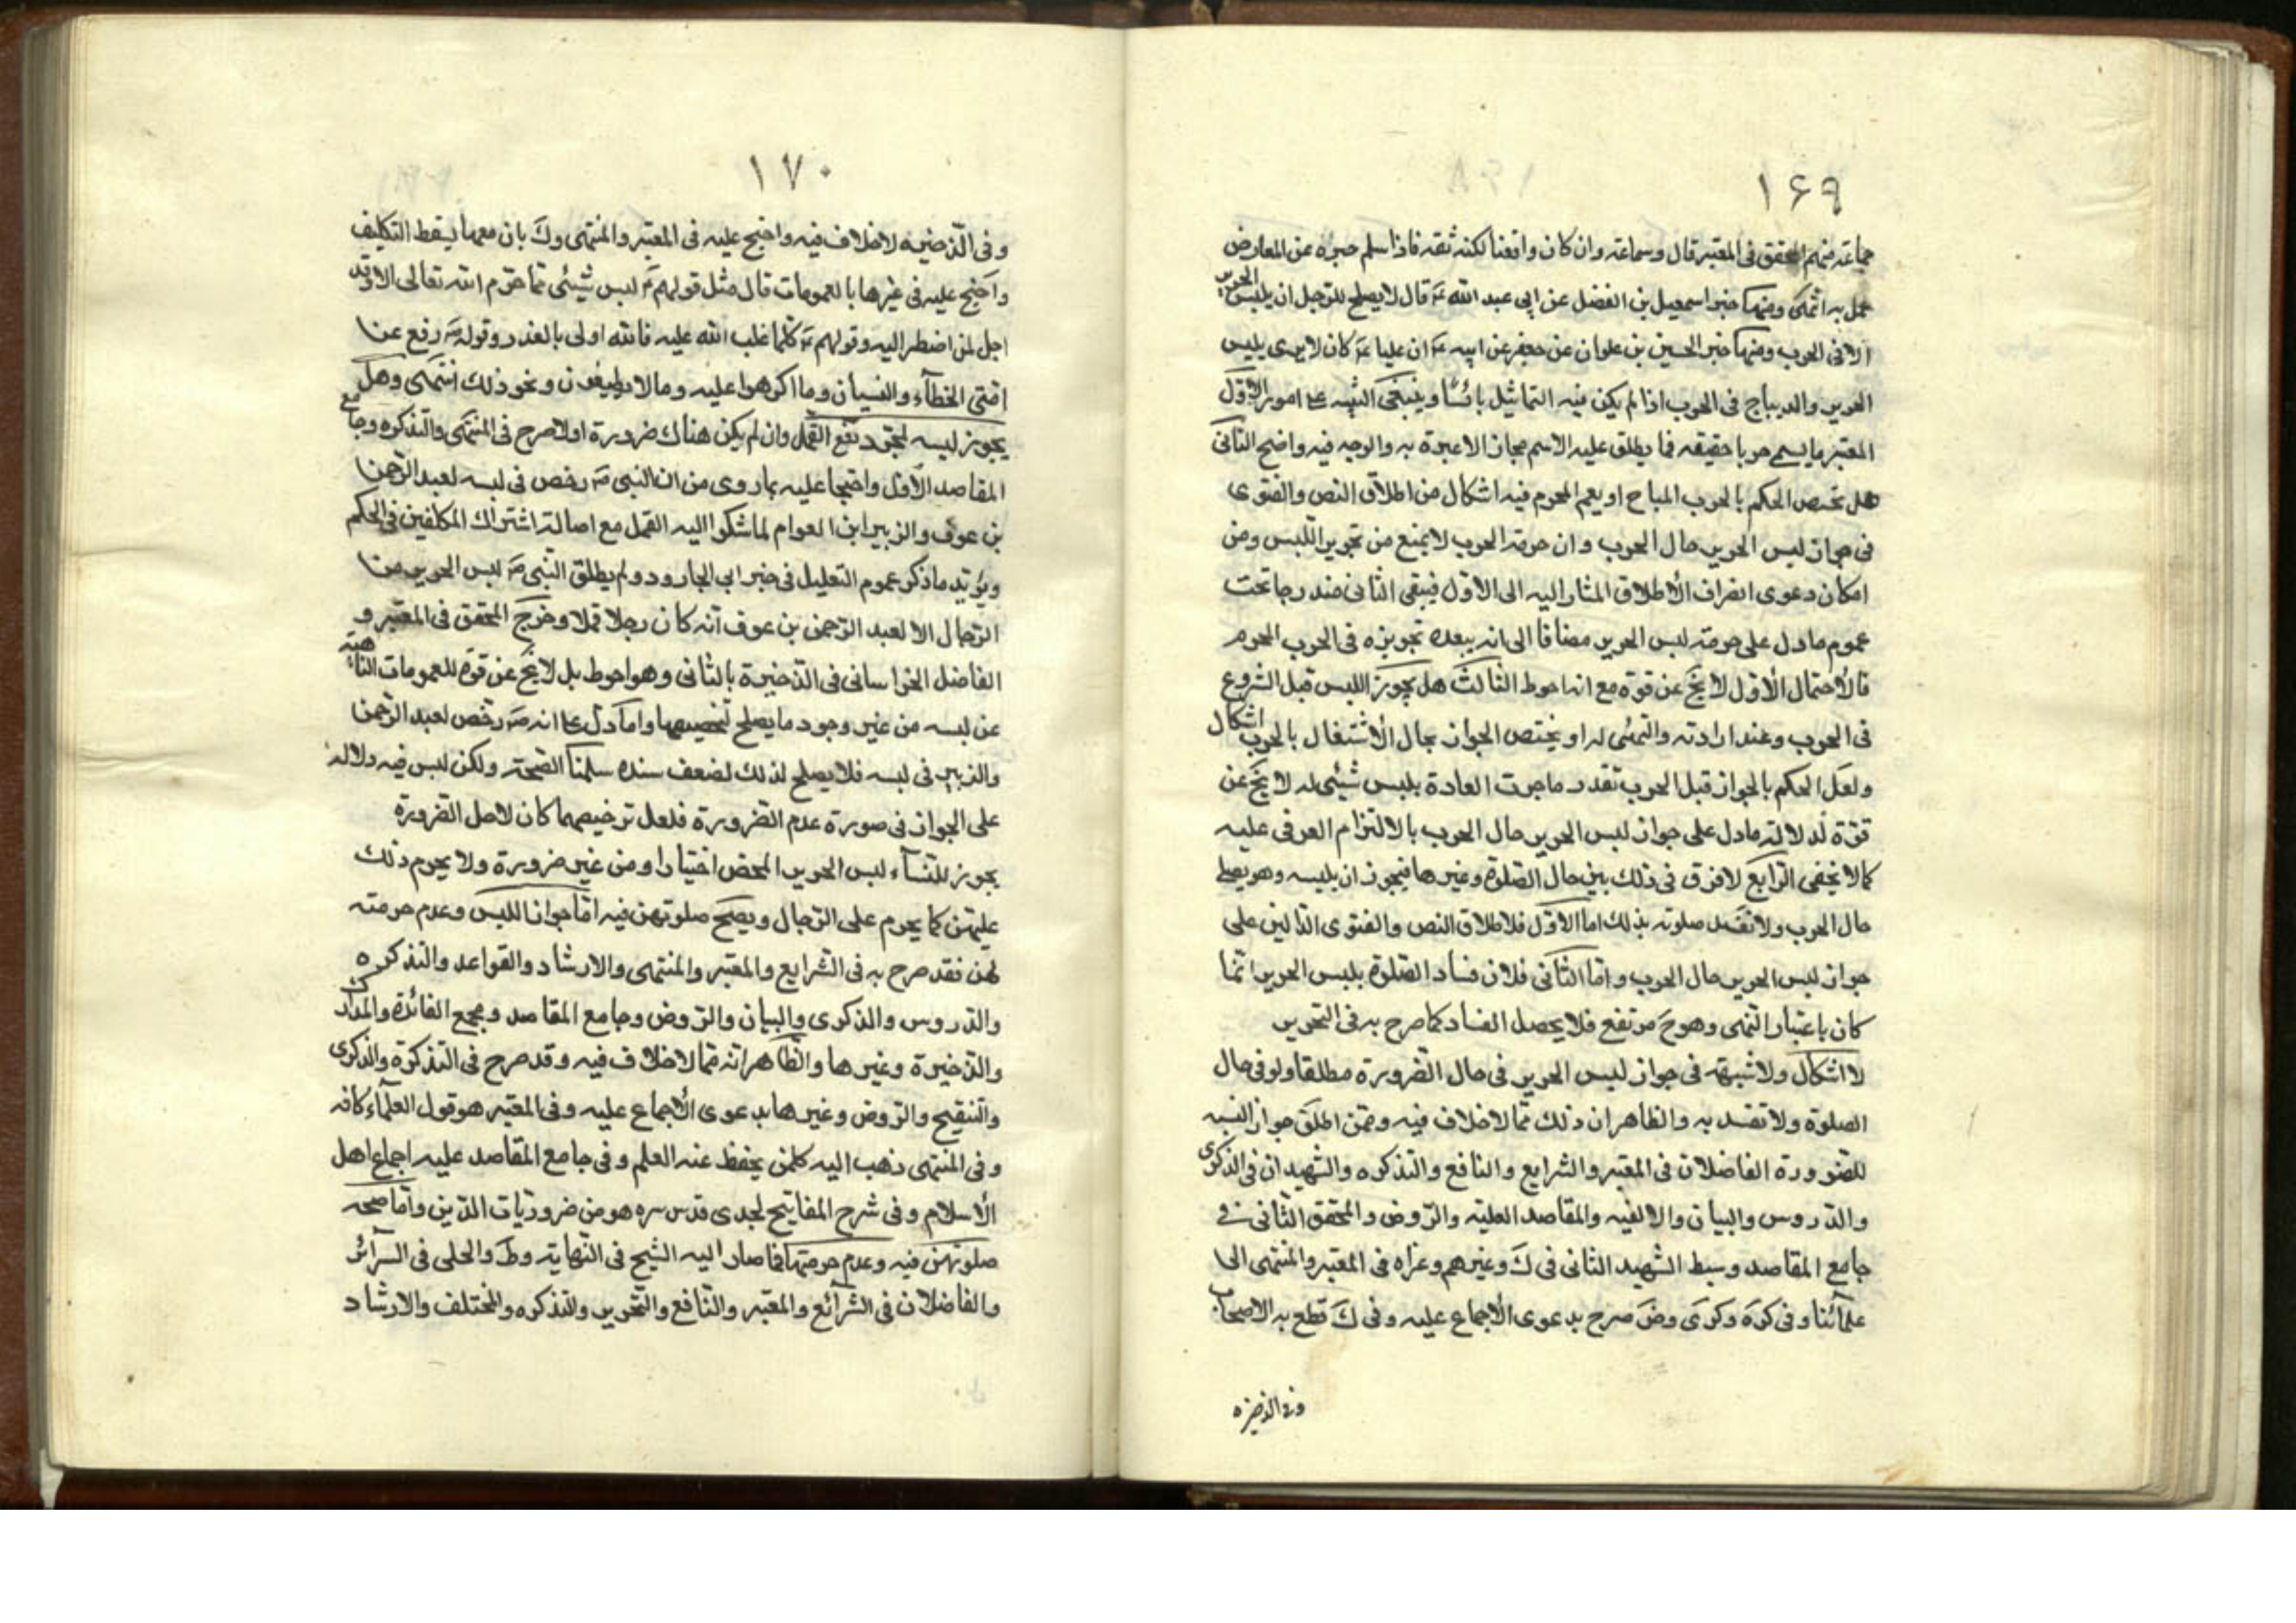 ١۶٩
جماعة منهم المحقق فى المعتبر قال وسماعة وان كان واقفا لكنه ثقه فاذا سلم خبره عن المعارض
عمل به انتهى ومنها خبر اسمعيل بن الفضل عن ابى عبد الله ع قال لا يصلح للرجل ان يلبس الحرير
الا فى الحرب ومنها خبر الحسين بن علوان عن جعفر عن ابيه ع ان عليا ع كان لا يرى بلبس
الحرير والديباج فى الحرب اذا لم يكن فيه التماثيل بائسًا وينبغى التنبيه على امور الاوّل
المعتبر ما يسمى حربا حقيقه فما يطلق عليه الاسم مجازا لا عبرة به والوجه فيه واضح الثانى
هل يختص الحكم بالحرب المباح او يعم المحرم فيه اشكال من اطلاق النص والفتوى
فى جواز لبس الحرير حال الحرب وان حرمة الحرب لا يمنع من تجويز اللبس ومن
امكان دعوى انصراف الأطلاق المشار اليه الى الاوّل فيبقى الثانى مندرجا تحت
عموم ما دل على حرمة لبس الحرير مضافا الى انه يبعده تجويزه فى الحرب المحرم
فالأحتمال الأوّل لا يخ عن قوّه مع انه احوط الثالث هل يجوز اللبس قبل الشروع
فى الحرب وعند ارادته والتهيّئ له او يختص الجواز بحال الأشتغال بالحرب اشكال
ولعل الحكم بالجواز قبل الحرب بقدر ما جرت العادة بلبس شيئى له لا يخ عن
قوّة لدلالة ما دل على جواز لبس الحرير حال الحرب بالالتزام العرفى عليه
كما لا يخفى الرّابع لا فرق فى ذلك بين حال الصّلوة وغيرها فيجوز ان يلبسه وهو يصلى
حال الحرب ولا تفسد صلوته بذلك اما الاوّل فلاطلاق النص والفتوى الدّالين على
جواز لبس الحرير حال الحرب وامّا الثّانى فلان فساد الصّلوة بلبس الحرير انّما
كان باعتبار النّهى وهو ح مرتفع فلا يحصل الفساد كما صرح به فى التحرير
لا اشكال ولا شبهة فى جواز لبس الحرير فى حال الضّرورة مطلقا ولو فى حال
الصلوة ولا تفسد به والظاهر ان ذلك ممّا لا خلاف فيه وممّن اطلق جواز لبسه
للضرورة الفاضلان فى المعتبر والشرايع والنافع والتذكره والشهيدان فى الذكرى
والدّروس والبيان والالفيه والمقاصد العليّه والرّوض والمحقق الثّانى فى
جامع المقاصد وسبط الشهيد الثانى فى ك وغيرهم وعزاه فى المعتبر والمنتهى الى
علمائنا وفى كره وكرى وض صرح بدعوى الأجماع عليه وفى ك قطع به الاصحاب
وفى الذخيره
١٧٠
وفى الذّخيره لا خلاف فيه واحتج عليه فى المعتبر والمنتهى وك بان معها يسقط التكليف
واحتج عليه فى غيرها بالعمومات قال مثل قولهم ع ليس شيئى ممّا حرّم الله تعالى الا وقد
احل لمن اضطر اليه وقولهم ع كلما غلب الله عليه فالله اولى بالعذر وقوله ص رفع عن
امّتى الخطآء والنسيان وما اكرهوا عليه وما لا يطيقون ونحو ذلك انتهى وهل
يجوز لبسه لمجرّد دفع القمل وان لم يكن هناك ضرورة اولا صرح فى المنتهى والتذكره وجامع
المقاصد الأوّل واحتجا عليه بما روى من ان النبى ص رخص فى لبسه لعبد الرّحمن
بن عوف والزبير ابن العوام لما شكوا اليه القمل مع اصالة اشتراك المكلفين فى الحكم
ويؤيّد ما ذكر عموم التعليل فى خبر ابى الجارود ولم يطلق النّبى ص لبس الحرير من
الرّجال الا لعبد الرّحمن بن عوف انّه كان رجلا قملا وخرج المحقق فى المعتبر و
الفاضل الخراسانى فى الذّخيرة بالثّانى وهو احوط بل لا يخ عن قوّه للعمومات الناهية
عن لبسه من غير وجود ما يصلح لتخصيصها واما ما دلّ على انه ص رخّص لعبد الرّحمن
والزبير فى لبسه فلا يصلح لذلك لضعف سنده سلمنا الصّحة ولكن ليس فيه دلاله
على الجواز فى صورة عدم الضّرورة فلعل ترخيصهما كان لاجل الضّرورة
يجوز للنّسآء لبس الحرير المحض اختيارا ومن غير ضرورة ولا يحرم ذلك
عليهنّ كما يحرم على الرّجال ويصحّ صلوتهن فيه امّا جواز اللبس وعدم حرمته
لهن فقد صرح به فى الشرايع والمعتبر والمنتهى والارشاد والقواعد والتذكره
والدّروس والذكرى والبيان والرّوض وجامع المقاصد ومجمع الفائدة والمدارك
والذّخيرة وغيرها والظّاهر انّه ممّا لا خلاف فيه وقد صرح فى التذكرة والذكرى
والتنقيح والرّوض وغيرها بدعوى الأجماع عليه وفى المعتبر هو قول العلمآء كافه
وفى المنتهى ذهب اليه كلمن يحفظ عنه العلم وفى جامع المقاصد عليه اجماع اهل
الأسلام وفى شرح المفاتيح لجدى قدس سره هو من ضروريّات الدّين وامّا صحّه
صلوتهنّ فيه وعدم حرمتها فما صار اليه الشّيخ فى النّهاية وط والحلى فى السرآئر
والفاضلان فى الشرآئع والمعتبر والنّافع والتّحرير والتذكره والمختلف والارشاد